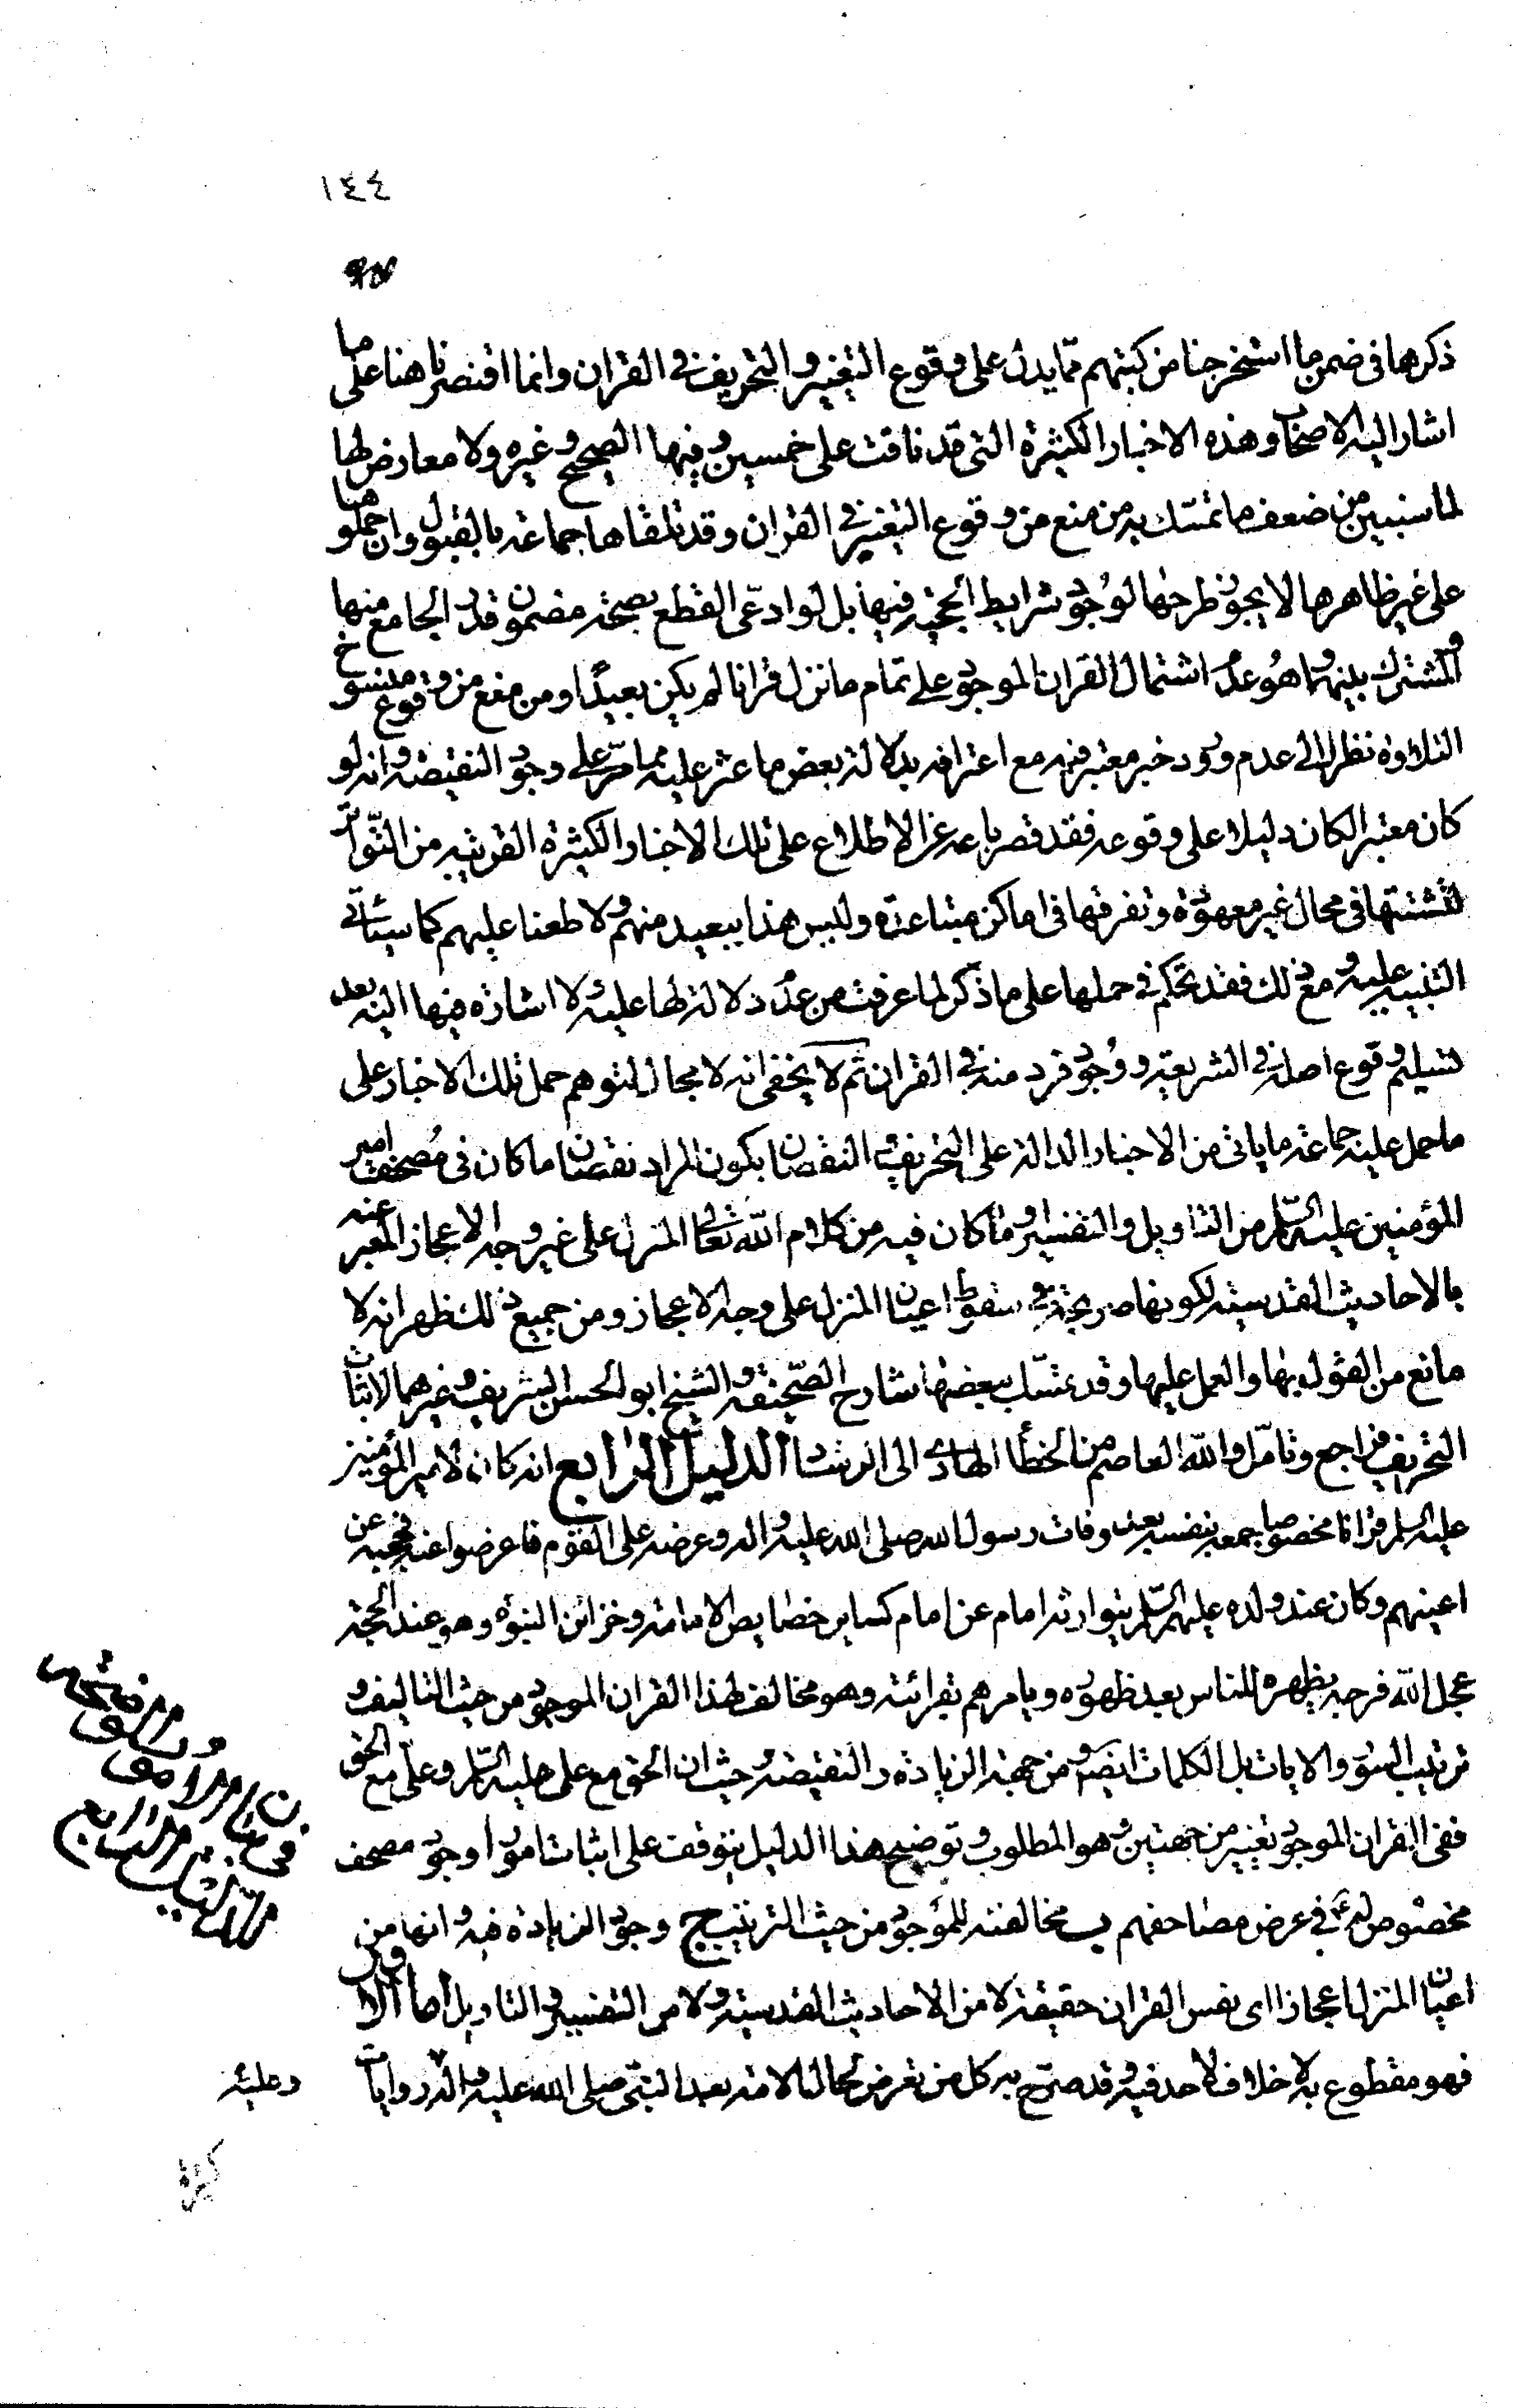 ١٤٤
ذكرها فى ضمن ما استخرجنا من كتبهم مما يدل على وقوع التغيير والتحريف فى القران وانما اقتصرنا هنا على ما
اشار اليه الاصحاب وهذه الاخبار الكثيرة التى قد نافت على خمسين وفيها الصحيح وغيره ولا معارض لها
لما سنبين من ضعف ما تمسك به من منع من وقوع التغيير فى القران وقد تلقاها جماعة بالقبول وان حملوها
على غير ظاهرها لا يجوز طرحها لوجود شرايط الحجية فيها بل لو ادعى القطع بصحة مضمون قدر الجامع منها
والمشترك بينها وهو عدم اشتمال القران الموجود على تمام ما نزل قرانا لم يكن بعيدا ومن منع من وقوع منسوخ
التلاوة نظرا الى عدم ورود خبر معتبر فيه مع اعترافه بدلالة بعض ما عثر عليه مما مر على وجود النقيصة وانه لو
كان معتبرا لكان دليلا على وقوعه فقد قصر باعه عن الاطلاع على تلك الاخبار الكثيرة القريبة من التواتر
لتشتتها فى محال غير معهودة وتفرقها فى اماكن متباعدة وليس هذا ببعيد منهم ولا طعنا عليهم كما سياتى
التنبيه عليه ومع ذلك فقد تحكم فى حملها على ما ذكر لما عرفت من عدم دلالة لها عليه ولا اشارة فيها اليه بعد
تسليم وقوع اصله فى الشريعة ووجود فرد منه فى القران ثم لا يخفى انه لا مجال لتوهم حمل تلك الاخبار على
ما حمل عليه جماعة ما ياتى من الاخبار الدالة على التحريف والنقصان بكون المراد نقصان ما كان فى مصحف امير
المؤمنين عليه السلم من التاويل والتفسير او ما كان فيه من كلام الله تعالى المنزل على غير وجه الاعجاز المعبر عنه
بالاحاديث القدسية لكونها صريحة فى سقوط اعيان المنزل على وجه الاعجاز ومن جميع ذلك ظهر انه لا
مانع من القول بها والعمل عليها وقد تمسك ببعضها شارح الصحيفة والشيخ ابو الحسن الشريف وغيرهما لاثبات
التحريف فراجع وتامل والله العاصم من الخطأ الهادى الى الرشاد الدليل الرابع انه كان لامير المؤمنين
عليه السلم قرانا مخصوصا جمعه بنفسه بعد وفات رسول الله صلى الله عليه واله وعرضه على القوم فاعرضوا عنه فحجبه عن
اعينهم وكان عند ولده عليهم السلم يتوارثه امام عن امام كساير خصايص الامامة وخزائن النبوة وهو عند الحجة
عجل الله فرجه يظهره للناس بعد ظهوره ويامرهم بقرائته وهو مخالف لهذا القران الموجود من حيث التاليف و
ترتيب السور والايات بل الكلمات ايضا ومن جهة الزيادة والنقيصة وحيث ان الحق مع على عليه السلم وعلى مع الحق
ففى القران الموجود تغيير من جهتين وهو المطلوب وتوضيح هذا الدليل يتوقف على اثبات امور ا وجود مصحف
مخصوص له ع فى عرض مصاحفهم ب مخالفته للموجود من حيث الترتيب ج وجود الزيادة فيه وانها من
اعيان المنزل اعجازا اى نفس القران حقيقة لا من الاحاديث القدسية ولا من التفسير والتاويل اما الاول
فهو مقطوع به لا خلاف لاحد فيه وقد صرح به كل من تعرض لحالات الامة بعد النبى صلى الله عليه واله روايات
وعليه
كثيرة
الدليل الرابع